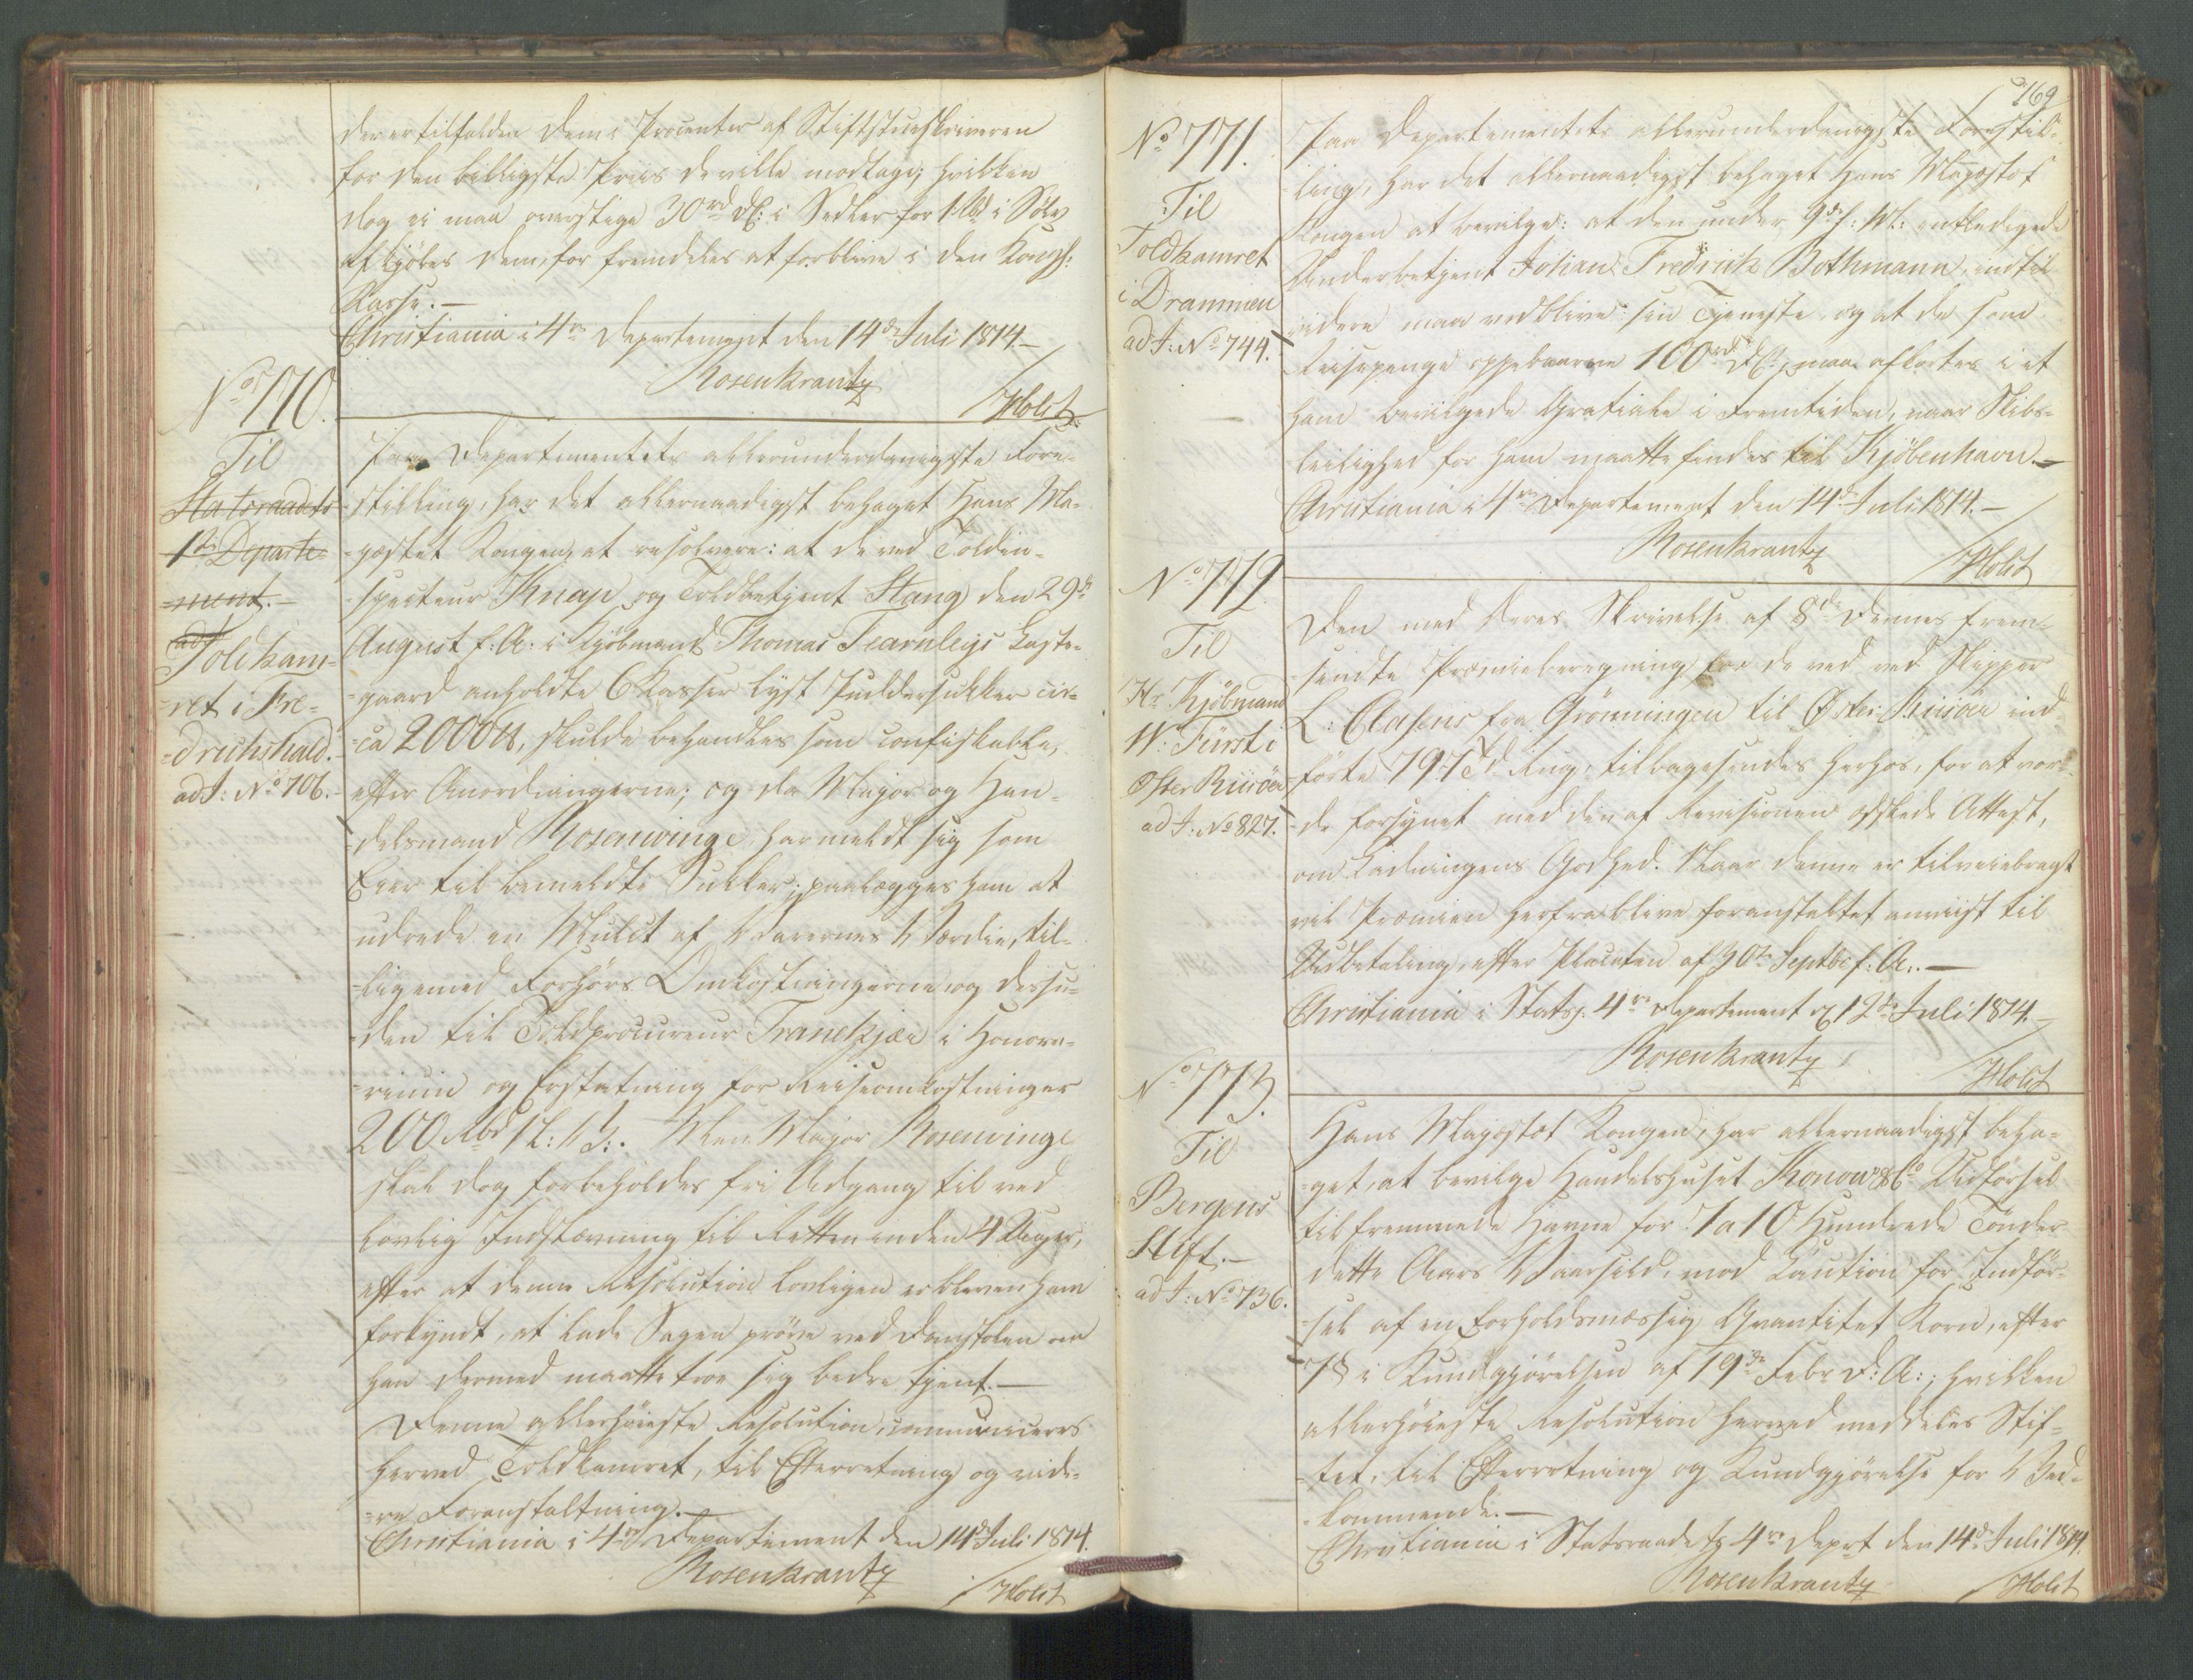 der er tilfalden dem i Procenter af Stiftstueskriveren
for den billigste Priis de ville modtage; hvilken
dog ei maa overstige 30 rd dl: i Sedler for 1 Rbd i Sölv
afkjöbes dem, for fremdeles at forblive i den Kongl:
Kasse.—
Christiania i 4re Departement den 14de Juli 1814.—
Rosenkrantz
/Holst
No 770.
Til
Statsraadets
1ste Departe-
-ment.—
Toldkam-
-ret i Fre-
-drichshald.
ad J: No 706.
Paa Departementets allerunderdanigste Fore-
-stilling, har det allernaadigst behaget Hans Ma-
-jestet Kongen, at resolvere: at de ved Toldin-
-specteur Knap og Toldbetjent Stang den 29de
August f: A: i Kjöbmand Thomas Fearnleys Laste-
-gaard anholdte 6 Kasser lyst Puddersukker cir-
-ca 2000 ℔, skulde behandles som confiskable,
efter Anordningerne; og da Major og Han-
-delsmand Rosenvinge har meldt sig som
Eier til bemeldte Sukker; paalægges ham at
udrede en Mulct af Varernes Værdie, til-
-ligemed Forhörs Omkostningerne og desfu-
-den til Toldprocureur Tranekjær i Honora-
-rium og Erstatning for Reiseomkostninger
200 Rbd. Men Major Rosenvinge
skal dog forbeholdes fri Adgang til ved
lovlig Indstævning til Retten inden 4 Uger,
efter at denne Resolution lovligen er bleven ham
forkyndt, at lade Sagen pröve ved Domstolen om
han dermed maatte troe sig bedre tjent.—
Denne allerhöieste Resolution, communiceres
herved Toldkamret, til Efterretning og vide-
-re Foranstaltning.—
Christiania i 4re Departement den 14de Juli 1814.
Rosenkrantz
/Holst
169
No 771.
Til
Toldkamret
i Drammen
ad J: No 744.
Paa Departementets allerunderdanigste Forestil-
-ling, har det allernaadigst behaget Hans Majestet
Kongen at bevilge: at den under 9de f: M: entledigede
Underbetjent Johan Fredrick Bothmann, indtil
videre maa vedblive sin Tjeneste, og at de som
Reisepenge oppebaarne 100 rd dl:, maa afkortes i et
ham bevilgede Gratiale i Fremtiden, naar Skibs-
leilighed for ham maatte findes til Kjöbenhavn.—
Christiania i 4re Departement den 14de Juli 1814.—
Rosenkrantz
/Holst
No 772.
Til
Hr Kjöbmand
W: Fürst i
Öster Riisöer
ad J: No 827.
Den med Deres Skrivelse af 8de dennes frem-
-sendte Præmieberegning for de ved Skipper
L: Clasens fra Grönningen til Öster-Riisöer ind-
-förte Rug, tilbagesendes herhos, for at vor-
-de forsynet med den af Revisionen æskede Attest,
om Ladningens Godhed. Naar denne er tilveiebragt
vil Præmien herfra blive foranstaltet anviist til
Udbetaling, efter Placaten af 30te Septbr f: A:.—
Christiania i Stats: 4re Departement d 12te Juli 1814.—
Rosenkrantz
/Holst
No 773.
Til
Bergens
Stift.—
ad J: No 736.
Hans Majestæt Kongen, har allernaadigst beha-
-get, at bevilge Handelshuset Konow & Co Udförsel
til fremmede Havne for 1 a 10 Hundrede Tönder
dette Aars Vaarsild, mod Caution for Indför-
-sel af en forholdsmæssig Qvantitet Korn, efter
7 § i Kundgjörelsen af 19de Febr d: A:; hvilken
allerhöieste Resolution herved meddeles Stif-
-tet, til Efterretning og Kundgjörelse for Ved-
-kommende.—
Christiania i Statsraadets 4re Deprt den 14de Juli 1814.
Rosenkrantz
/Holst